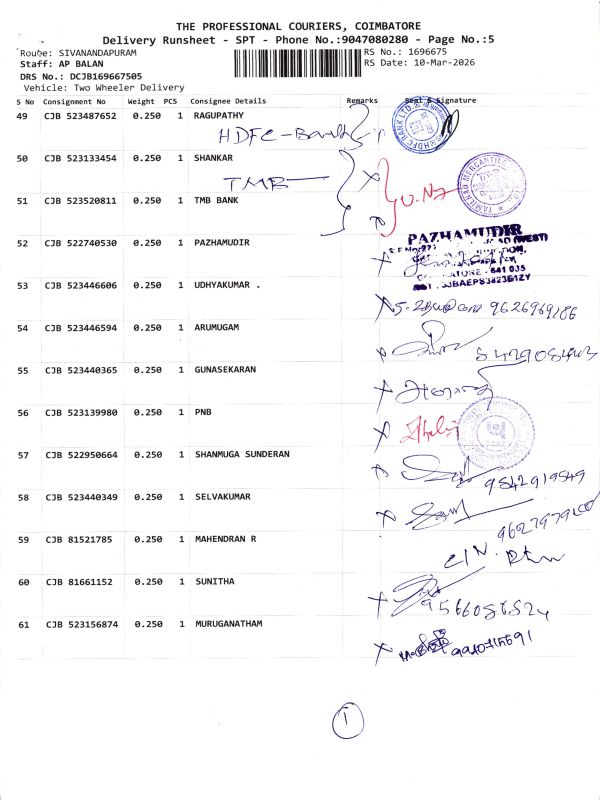 THE PROFESSIONAL COURIERS, COIMBATORE
Delivery Runsheet - SPT - Phone No.:9047080280 - Page No.:5
Route: SIVANANDAPURAM
RS No.: 1696675
Staff: AP BALAN
RS Date: 10-Mar-2026
DRS No.: DCJB169667505
Vehicle: Two Wheeler Delivery
S No Consignment No Weight PCS Consignee Details Remarks Seal & Signature
49 CJB 523487652 0.250 1 RAGUPATHY
HDFC-Bank
50 CJB 523133454 0.250 1 SHANKAR
TMB
51 CJB 523520811 0.250 1 TMB BANK
52 CJB 522740530 0.250 1 PAZHAMUDIR
PAZHAMUDIR
53 CJB 523446606 0.250 1 UDHYAKUMAR .
9626969186
54 CJB 523446594 0.250 1 ARUMUGAM
55 CJB 523440365 0.250 1 GUNASEKARAN
56 CJB 523139980 0.250 1 PNB
57 CJB 522950664 0.250 1 SHANMUGA SUNDERAN
9542919549
58 CJB 523440349 0.250 1 SELVAKUMAR
59 CJB 81521785 0.250 1 MAHENDRAN R
60 CJB 81661152 0.250 1 SUNITHA
61 CJB 523156874 0.250 1 MURUGANATHAM
1